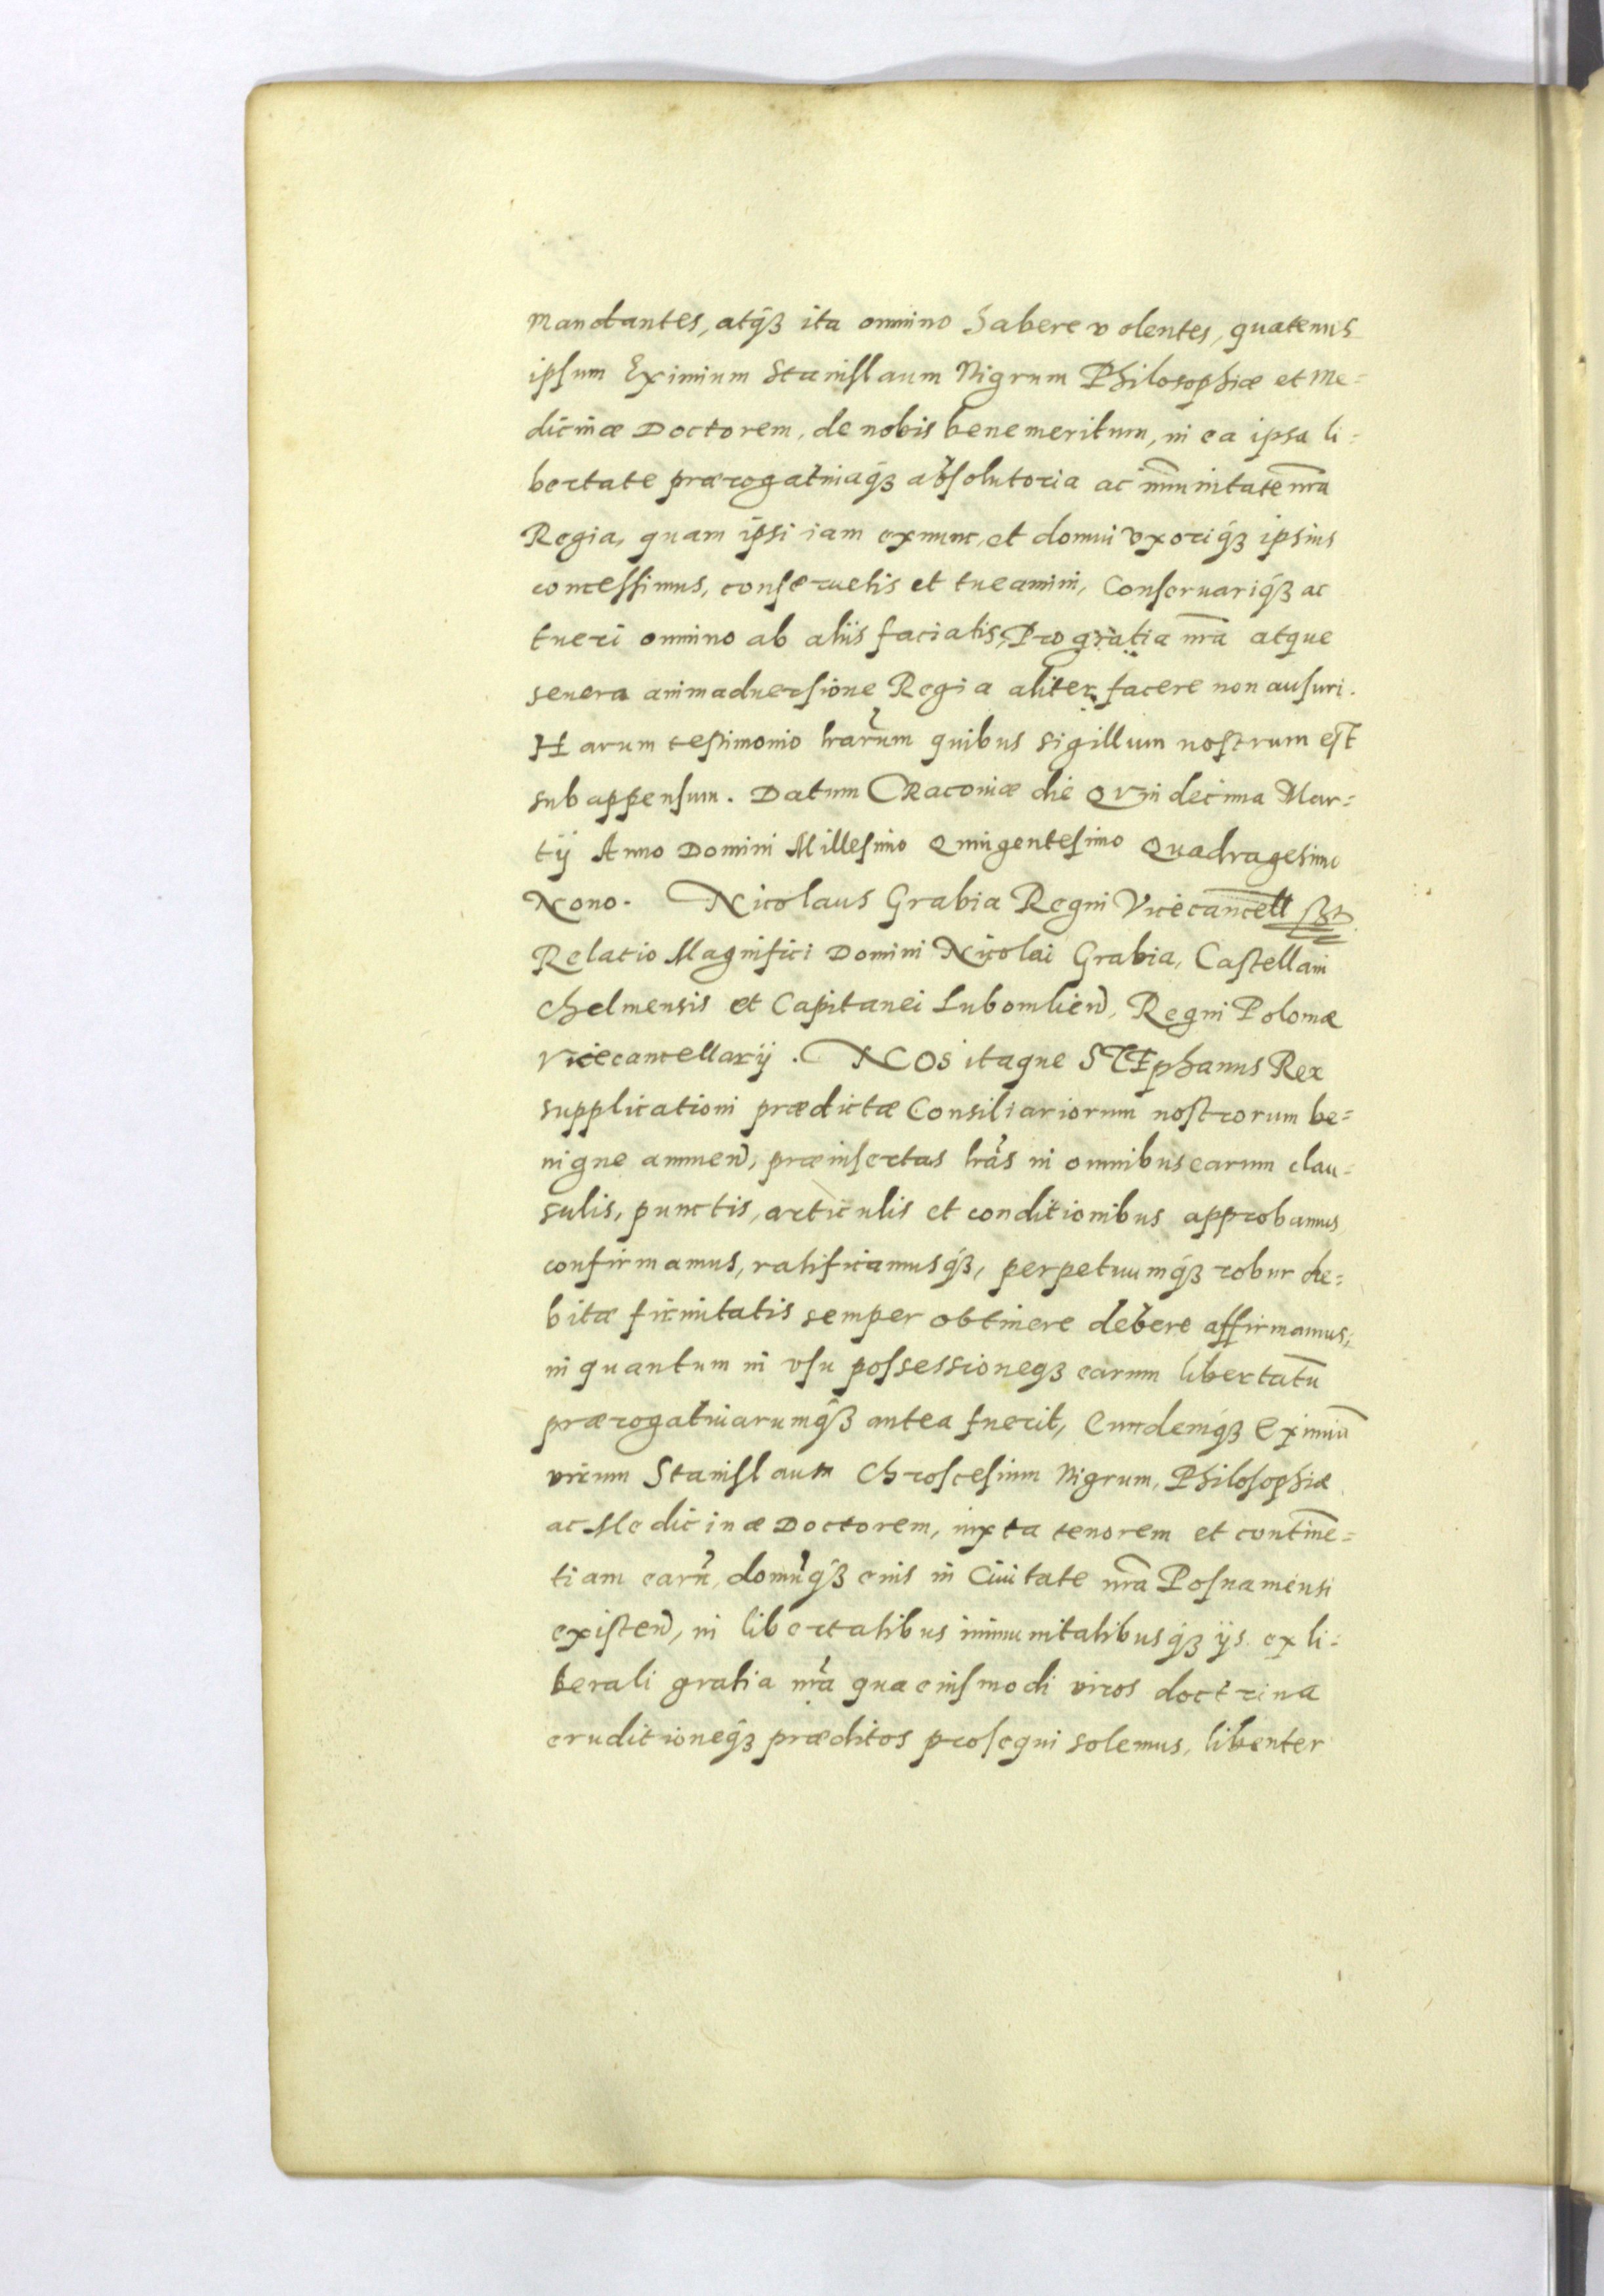 mandantes, atq́ꝫ ita omnino habere volentes, quatenus
ipsum Eximium Stanislaum Nigrum Philosophiæ et Me=
dicinæ Doctorem, de nobis benemeritum, in ea ipsa li=
bertate prærogatiuaq́ꝫ absolutoria ac im̄unitate nr̄a
Regia, quam ipsi iam exnunc, et domui vxoriq́ꝫ ipsius
concessimus, conseruetis et tueamini, Conseruariq́ꝫ ac
tueri omnino ab alijs faciatis, Pro gratia nr̄a atque
seuera animaduersione Regia aliter facere non ausuri.
Harum testimonio lrarum quibus sigillum nostrum est
subappensum. Datum CRacouiæ die QVindecima Mar=
tij Anno Domini Millesimo Quingentesimo Quadragesimo
Nono. Nicolaus Grabia Regni Vicecancell̄ sst
Relatio Magnifici Domini Nicolai Grabia, Castellani
Chelmensis et Capitanei Lubomlień, Regni Poloniæ
Vicecancellarij. NOs itaque STEphanus Rex
supplicationi prædictæ Consiliariorum nostrorum be=
nigne annueń, præinsertas lrás in omnibus earum clau=
sulis, punctis, articulis et conditionibus approbamus
confirmamus, ratificamusq́ꝫ, perpetuumq́ꝫ robur de=
bitæ firmitatis semper obtinere debere affirmamus,
in quantum in vsu possessioneqꝫ earum libertatū
prærogatiuarumq́ꝫ antea fuerit, Eundemq́ꝫ Eximiū
virum Stanislaum Chroscesium Nigrum, Philosophiæ
ac Medicinæ Doctorem, iuxta tenorem et contine=
tiam earū, domūq́ꝫ eius in Ciuitate nr̄a Posnaniensi
existeń, in libertatibus immunitatibusq́ꝫ ijs ex li=
berali gratia nrá qua eiusmodi viros doctrina
eruditioneq́ꝫ præditos prosequi solemus, libenter